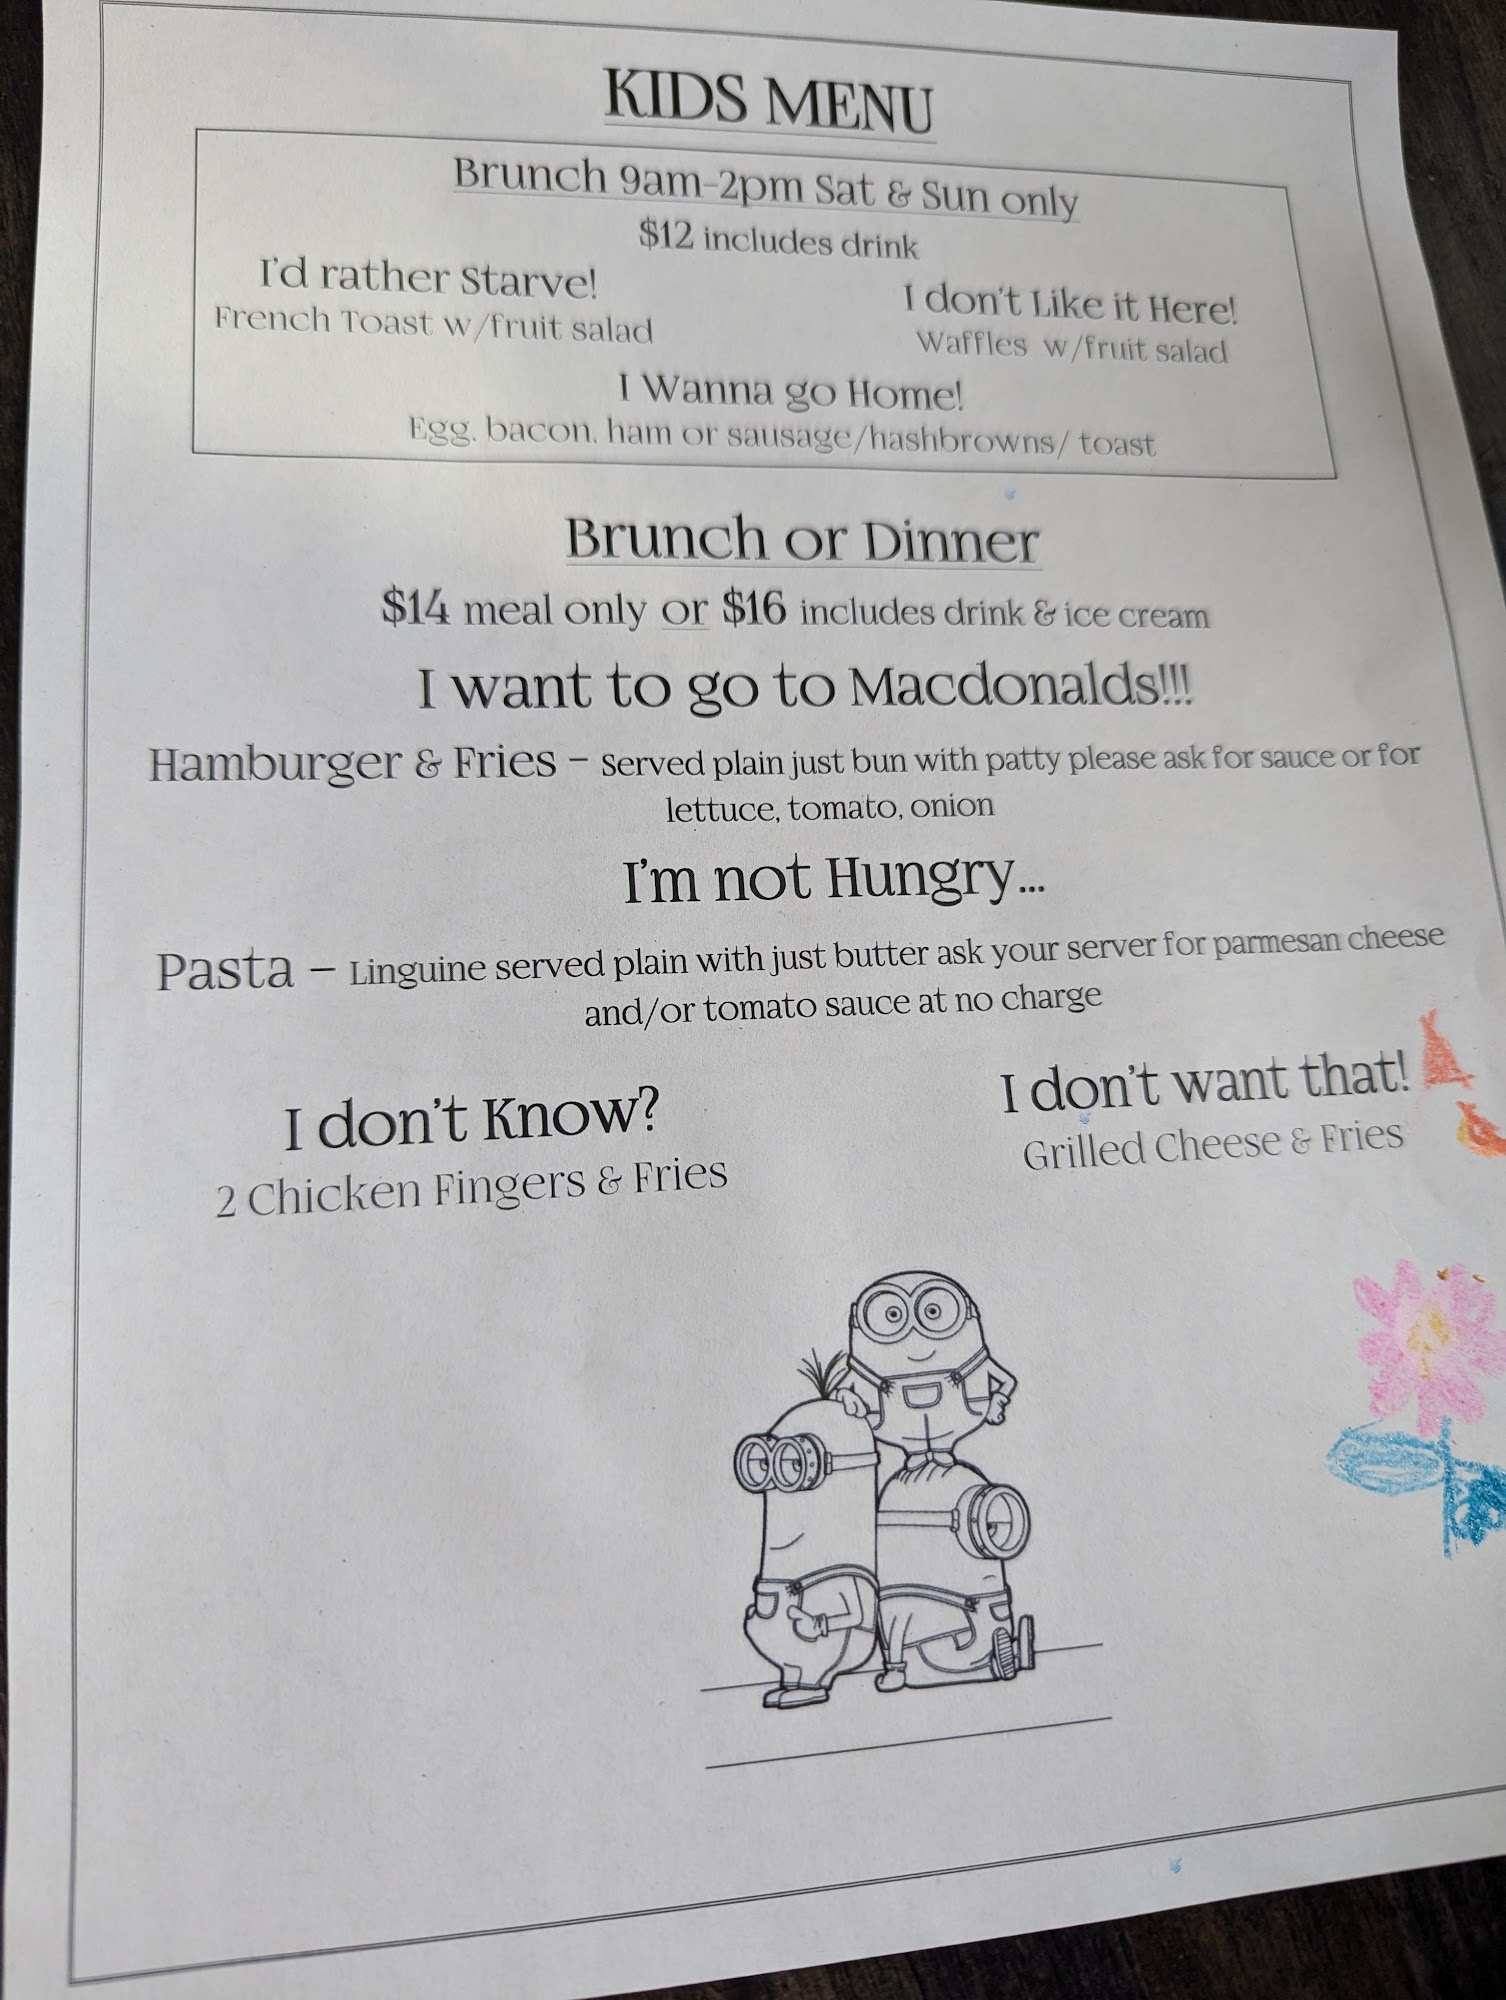 KIDS MENU
Brunch 9am-2pm Sat & Sun only
$12 includes drink
I'd rather Starve!
French Toast w/fruit salad
I don't Like it Here!
Waffles w/fruit salad
I Wanna go Home!
Egg, bacon, ham or sausage/hashbrowns/ toast
Brunch or Dinner
$14 meal only or $16 includes drink & ice cream
I want to go to Macdonalds!!!
Hamburger & Fries – Served plain just bun with patty please ask for sauce or for
lettuce, tomato, onion
I'm not Hungry...
Pasta – Linguine served plain with just butter ask your server for parmesan cheese
and/or tomato sauce at no charge
I don't Know?
2 Chicken Fingers & Fries
I don't want that!
Grilled Cheese & Fries